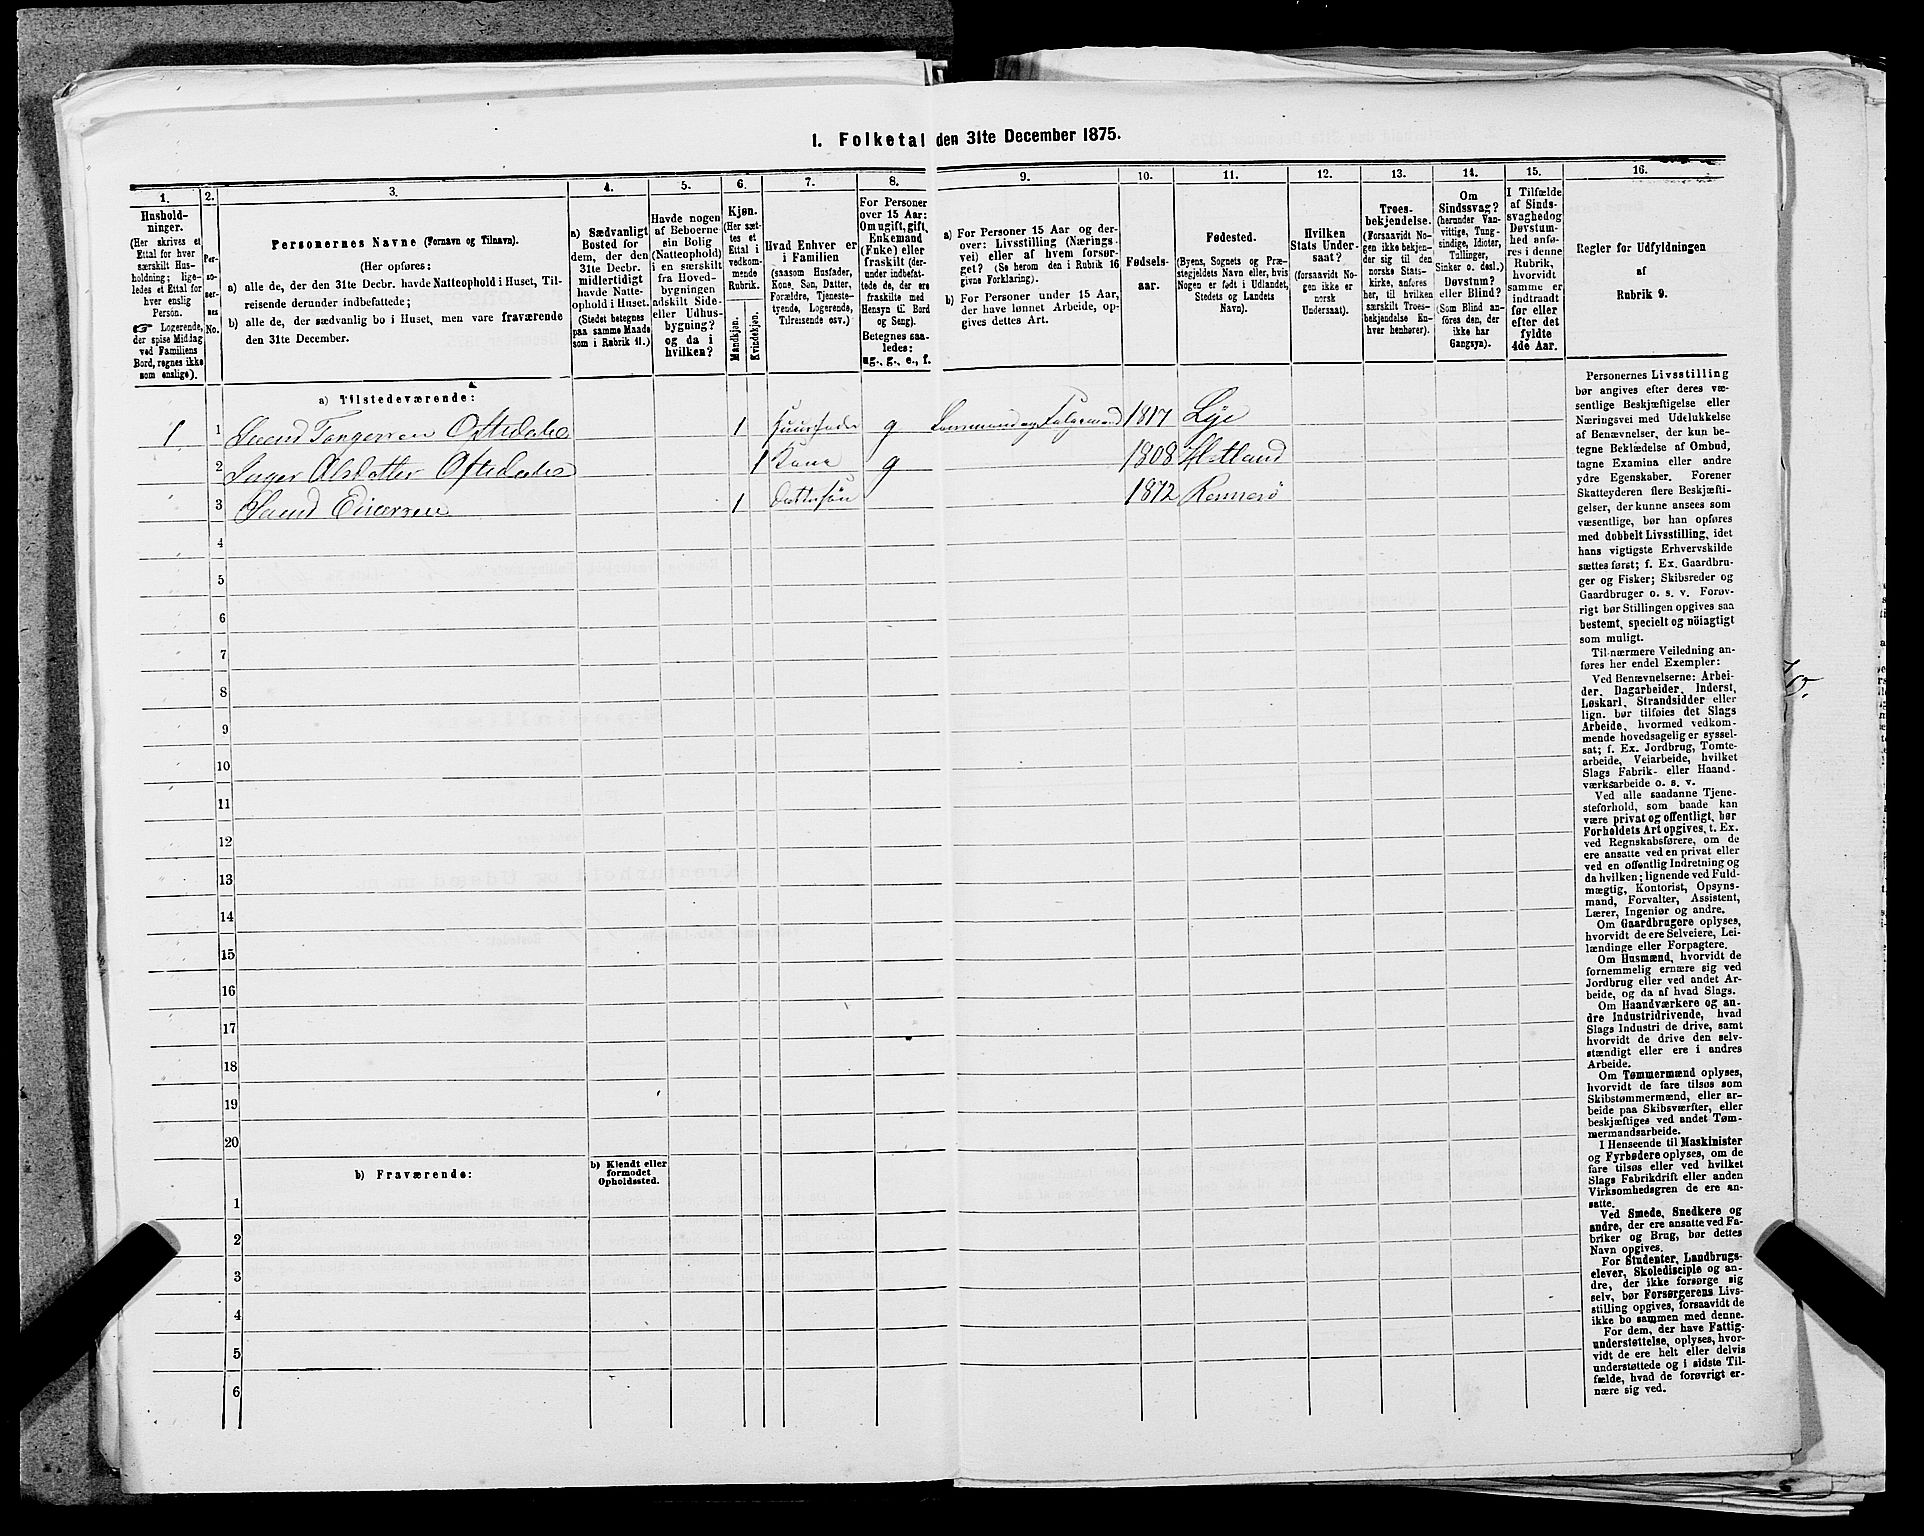 1. Folketal den 31te December 1875.
1. 2. 3. 4. 5. 6. 7. 8. 9. 10. 11. 12. 13. 14. 15. 16.
Hushold-
ninger.
(Her skrives et
Ettal for hver
særskilt Hus-
holdning; lige-
ledes et Ettal for
hver enslig
Person.
☞ Logerende,
der spise Middag
ved Familiens
Bord, regnes ikke
som enslige).
Per-
so-
ner-
nes
No.
Personernes Navne (Fornavn og Tilnavn).
(Her opføres:
a) alle de, der den 31te Decbr. havde Natteophold i Huset, Til-
reisende derunder indbefattede;
b) alle de, der sædvanlig bo i Huset, men vare fraværende
den 31te December.
a) Sædvanligt
Bosted for
dem, der den
31te Decbr.
midlertidigt
havde Natte-
ophold i Huset.
(Stedet betegnes
paa samme Maade
som i Rubrik 11.)
Havde nogen
af Beboerne
sin Bolig
(Natteophold)
i en særskilt
fra Hoved-
bygningen
adskilt Side-
eller Udhus-
bygning?
og da i
hvilken?
Kjøn.
(Her sæt-
tes et
Ettal i
vedkom-
mende
Rubrik.
Mandkjøn.
Kvindekjøn.
Hvad Enhver er
i Familien
(saasom Husfader,
Kone, Søn, Datter,
Forældre, Tjeneste-
tyende, Logerende,
Tilreisende osv.)
For Personer
over 15 Aar:
Om ugift, gift,
Enkemand
(Enke) eller
fraskilt (der-
under indbefat-
tede de, der ere
fraskilte med
Hensyn til Bord
og Seng).
Betegnes saa-
ledes:
ug., g., e., f.
a) For Personer 15 Aar og der-
over: Livsstilling (Nærings-
vei) eller af hvem forsør-
get? (Se herom den i Rubrik 16
givne Forklaring).
b) For Personer under 15 Aar,
der have lønnet Arbeide, op-
gives dettes Art.
Fødsels-
aar.
Fødested.
(Byens, Sognets og Præ-
stegjeldets Navn eller, hvis
Nogen er født i Udlandet,
Stedets og Landets
Navn).
Hvilken
Stats Under-
saat?
(forsaavidt No-
gen ikke er
norsk
Undersaat).
Troes-
bekjendelse.
(Forsaavidt No-
gen ikke bekjen-
der sig til den
norske Stats-
kirke, anføres
her, til hvilken
særskilt Troes-
bekjendelse En-
hver henhører).
Om
Sindssvag?
(herunder Van-
vittige, Tung-
sindige, Idioter,
Tullinger,
Sinker o. desl.)
Døvstum?
eller Blind?
(Som Blind an-
føres den, der
ikke har
Gangsyn).
I Tilfælde
af Sinds-
svaghed og
Døvstum-
hed anfø-
res i denne
Rubrik,
hvorvidt
samme er
indtraadt
før eller
efter det
fyldte
4de Aar.
Regler for Udfyldningen
af
Rubrik 9.
a) Tilstedeværende:
1 1 Svend Tongersen Oftedahl 1 Huusfader g 1817 Lye
2 Inger Olsdatter Oftedahl 1 Kone g 1808 Hetland
3 Svend Einersen 1 Dattersøn 1872 Rennesø
4
5
6
7
8
9
10
11
12
13
14
15
16
17
18
19
20
b) Fraværende:
b) Kjendt eller
formodet
Opholdssted.
1
2
3
4
5
6
Personernes Livsstilling
bør angives efter deres væ-
sentlige Beskjæftigelse eller
Næringsvei med Udelukkelse
af Benævnelser, der kun be-
tegne Beklædelse af Ombud,
tagne Examina eller andre
ydre Egenskaber. Forener
Skatteyderen flere Beskjæfti-
gelser, der kunne ansees som
væsentlige, bør han opføres
med dobbelt Livsstilling, idet
hans vigtigste Erhvervskilde
sættes først; f. Ex. Gaardbru-
ger og Fisker; Skibsreder og
Gaardbruger o. s. v. Forøv-
rigt bør Stillingen opgives saa
bestemt, specielt og nöiagtigt
som muligt.
Til nærmere Veiledning an-
føres her endel Exempler:
Ved Benævnelserne: Arbei-
der, Dagarbeider, Inderst,
Løskarl, Strandsidder eller
lign. bør tilføies det Slags
Arbeide, hvormed vedkom-
mende hovedsagelig er syssel-
sat; f. Ex. Jordbrug, Tomte-
arbeide, Veiarbeide, hvilket
Slags Fabrik- eller Haand-
værksarbeide o. s. v.
Ved alle saadanne Tjene-
steforhold, som baade kan
være privat og offentligt, bør
Forholdets Art opgives, t. Ex.
ved Regnskabsførere, om de
ere ansatte ved en privat eller
ved en offentlig Indretning og
da hvilken; lignende ved Fuld-
mægtig, Kontorist, Opsyns-
mand, Forvalter, Assistent,
Lærer, Ingeniør og andre.
Om Gaardbrugere oplyses,
hvorvidt de ere Selveiere, Lei-
lændinge eller Forpagtere.
Om Husmænd, hvorvidt de
fornemmelig ernære sig ved
Jordbrug eller ved andet Ar-
beide, og da af hvad Slags.
Om Haandværkere og an-
dre Industridrivende, hvad
Slags Industri de drive, samt
hvorvidt de drive den selv-
stændigt eller ere i andres
Arbeide.
Om Tømmermænd oplyses,
hvorvidt de fare tilsøs som
Skibstømmermænd, eller ar-
beide paa Skibsværfter, eller
beskjæftiges ved andet Tøm-
mermandsarbeide.
I Henseende til Maskinister
og Fyrbødere oplyses, om de
fare tilsøs eller ved hvilket
Slags Fabrikdrift eller anden
Virksomhedsgren de ere an-
satte.
Ved Smede, Snedkere og
andre, der ere ansatte ved Fa-
briker og Brug, bør dettes
Navn opgives.
For Studenter, Landbrugs-
elever, Skoledisciple og an-
dre, der ikke forsørge sig
selv, bør Forsørgerens Livs-
stilling opgives, forsaavidt de
ikke bo sammen med denne.
For dem, der have Fattig-
understøttelse, oplyses, hvor-
vidt de ere helt eller delvis
understøttede og i sidste Til-
fælde, hvad de forøvrigt er-
nære sig ved.